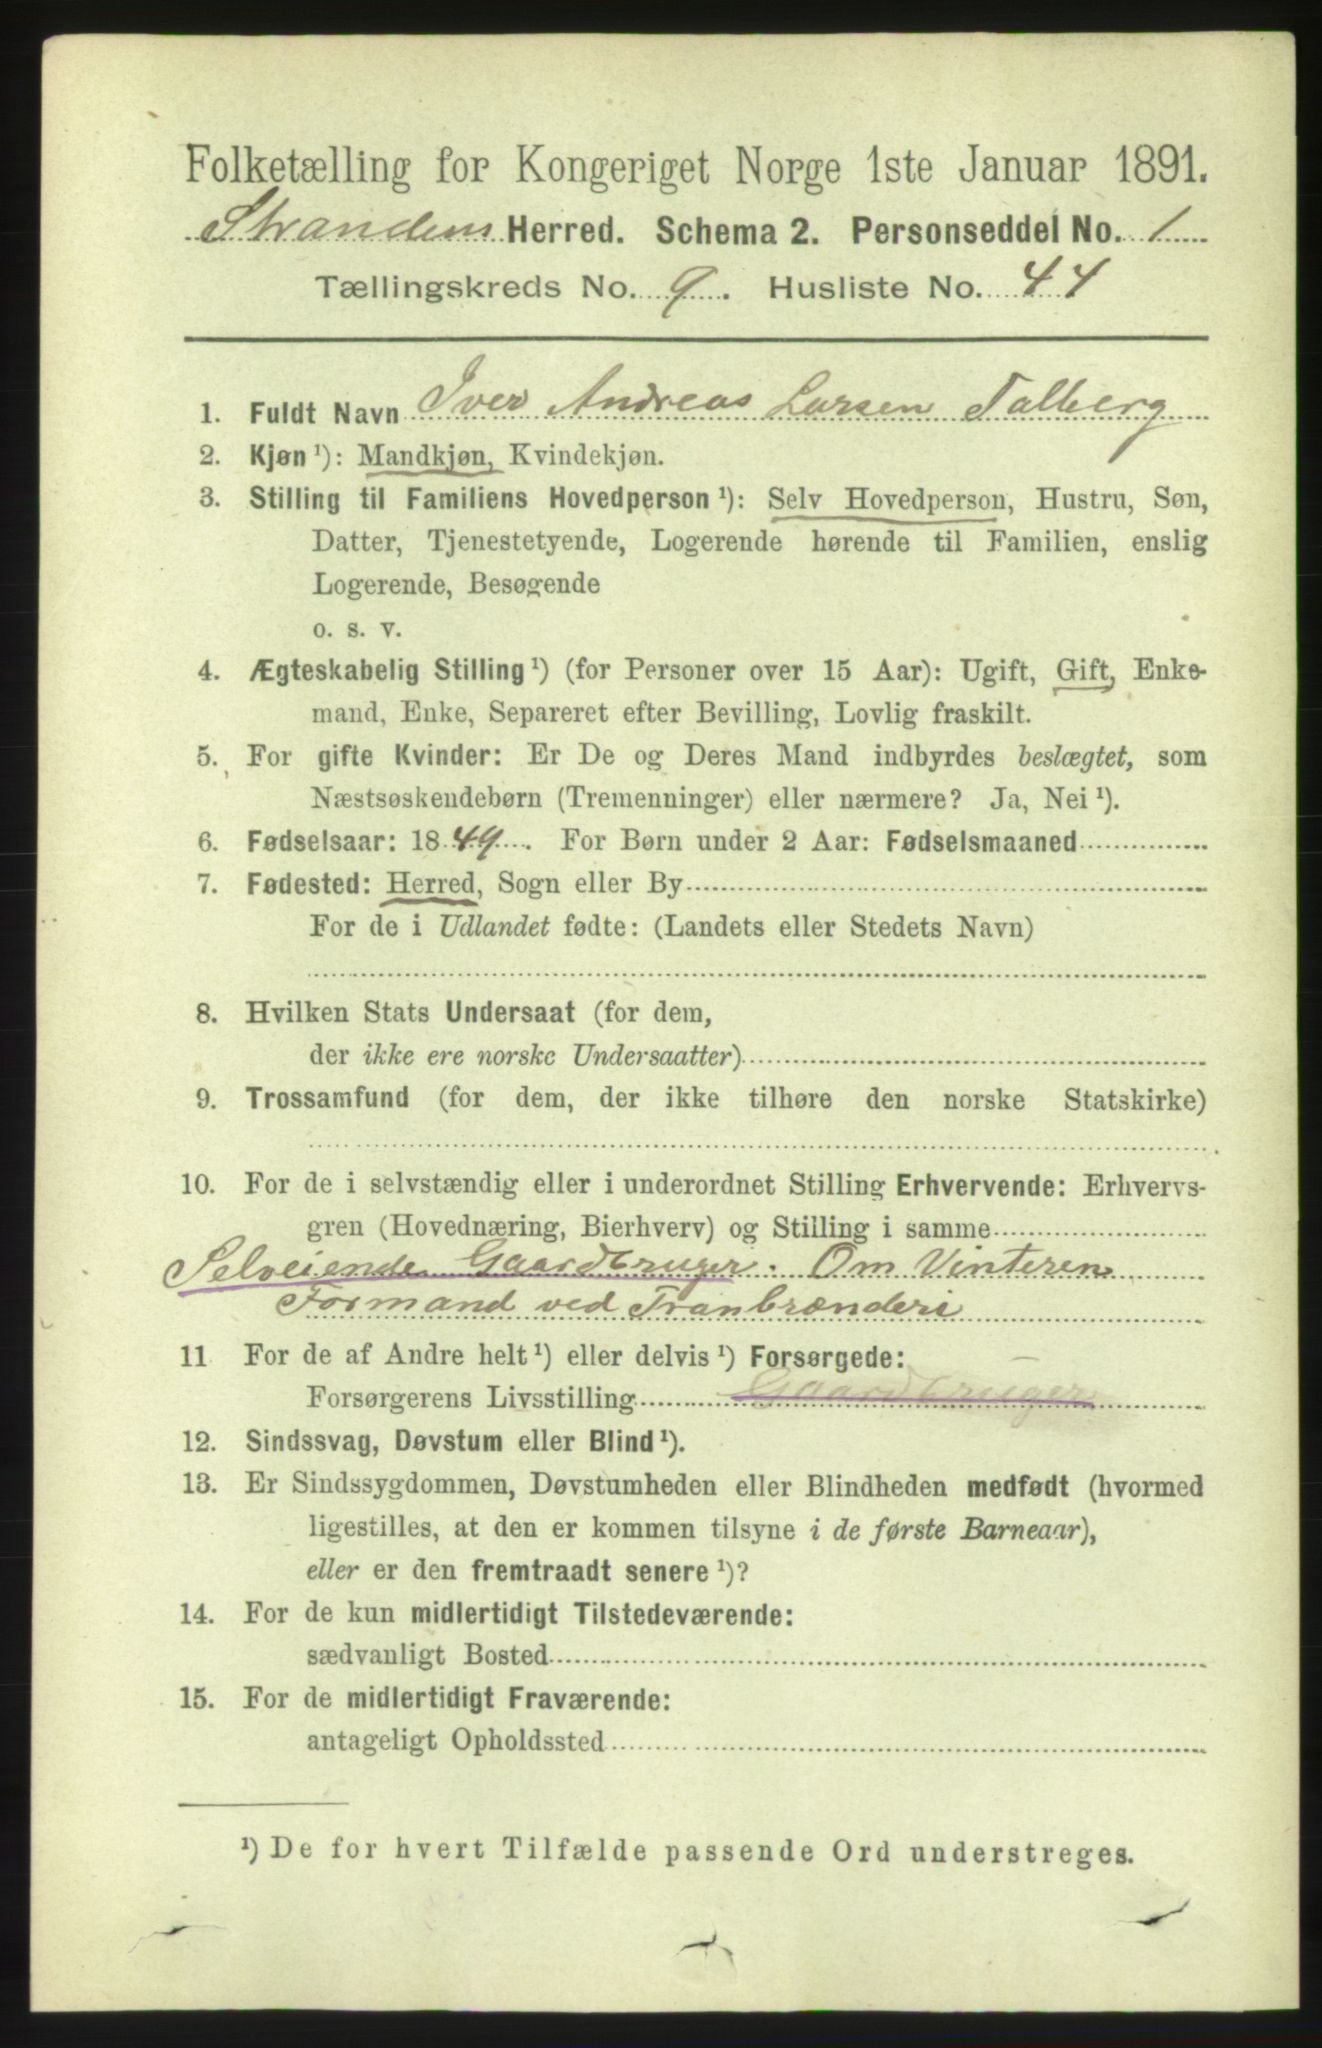 Folketælling for Kongeriget Norge 1ste Januar 1891.
Strandens Herred. Schema 2. Personseddel No. 1
Tællingskreds No. 9. Husliste No. 44
1. Fuldt Navn Iver Andreas Larsen Talberg
2. Kjøn ¹): Mandkjøn, Kvindekjøn.
3. Stilling til Familiens Hovedperson ¹): Selv Hovedperson, Hustru, Søn,
Datter, Tjenestetyende, Logerende hørende til Familien, enslig
Logerende, Besøgende
o. s. v.
4. Ægteskabelig Stilling ¹) (for Personer over 15 Aar): Ugift, Gift, Enke-
mand, Enke, Separeret efter Bevilling, Lovlig fraskilt.
5. For gifte Kvinder: Er De og Deres Mand indbyrdes beslægtet, som
Næstsøskendebørn (Tremenninger) eller nærmere? Ja, Nei ¹).
6. Fødselsaar: 1849. For Børn under 2 Aar: Fødselsmaaned
7. Fødested: Herred, Sogn eller By
For de i Udlandet fødte: (Landets eller Stedets Navn)
8. Hvilken Stats Undersaat (for dem,
der ikke ere norske Undersaatter)
9. Trossamfund (for dem, der ikke tilhøre den norske Statskirke)
10. For de i selvstændig eller i underordnet Stilling Erhvervende: Erhvervs-
gren (Hovednæring, Bierhverv) og Stilling i samme
Selveiende Gaardbruger. Om Vinteren
Formand ved Tranbrænderi
11 For de af Andre helt ¹) eller delvis ¹) Forsørgede:
Forsørgerens Livsstilling Gaardbruger
12. Sindssvag, Døvstum eller Blind ¹).
13. Er Sindssygdommen, Døvstumheden eller Blindheden medfødt (hvormed
ligestilles, at den er kommen tilsyne i de første Barneaar),
eller er den fremtraadt senere ¹)?
14. For de kun midlertidigt Tilstedeværende:
sædvanligt Bosted
15. For de midlertidigt Fraværende:
antageligt Opholdssted
¹) De for hvert Tilfælde passende Ord understreges.